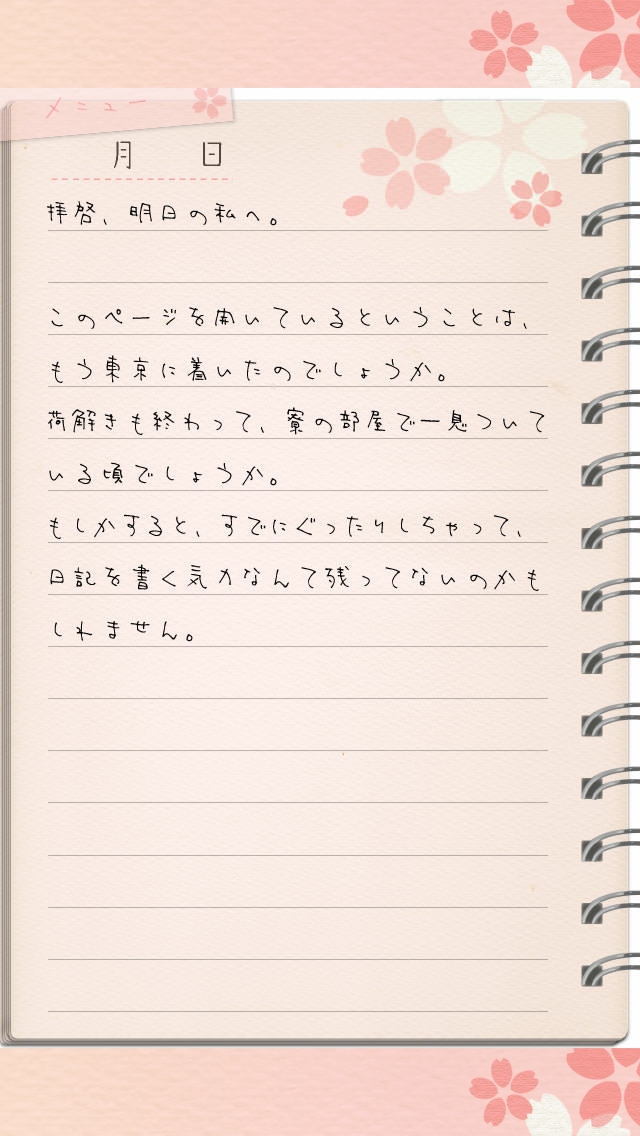 メニュー
月 日
拝啓、明日の私へ。
このページを開いているということは、
もう東京に着いたのでしょうか。
荷解きも終わって、寮の部屋で一息ついて
いる頃でしょうか。
もしかすると、すでにぐったりしちゃって、
日記を書く気力なんて残ってないのかも
しれません。